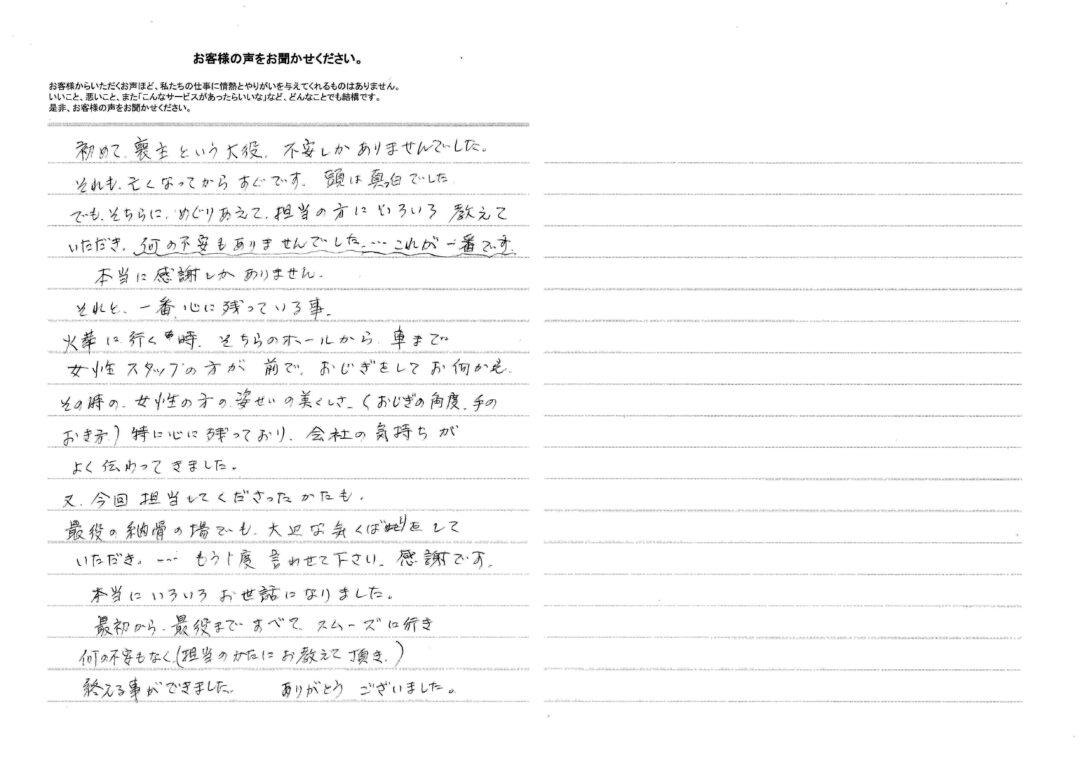 お客様の声をお聞かせください。
お客様からいただくお声ほど、私たちの仕事に情熱とやりがいを与えてくれるものはありません。
いいこと、悪いこと、また「こんなサービスがあったらいいな」など、どんなことでも結構です。
是非、お客様の声をお聞かせください。
初めて、喪主という大役、不安しかありませんでした。
それも、亡くなってからすぐです。頭は真っ白でした
でも、そちらに、めぐりあえて、担当の方にいろいろ教えて
いただき、何の不安もありませんでした…これが一番です。
本当に感謝しかありません。
それと、一番、心に残っている事。
火葬に行く時、そちらのホールから、車まで
女性スタッフの方が前で、おじぎをしてお何か
その時の、女性の方の、姿せいの美くしさ、(おじぎの角度、手の
おき方)特に心に残っており、会社の気持ちが
よく伝わってきました。
又、今回担当してくださったかたも、
最後の納骨の場でも、大変な気くばりをして
いただき、…もう1度言わせて下さい。感謝です。
本当にいろいろお世話になりました。
最初から、最後まですべて、スムーズに行き
何の不安もなく、(担当のかたにお教えて頂き、)
終える事ができました。 ありがとうございました。